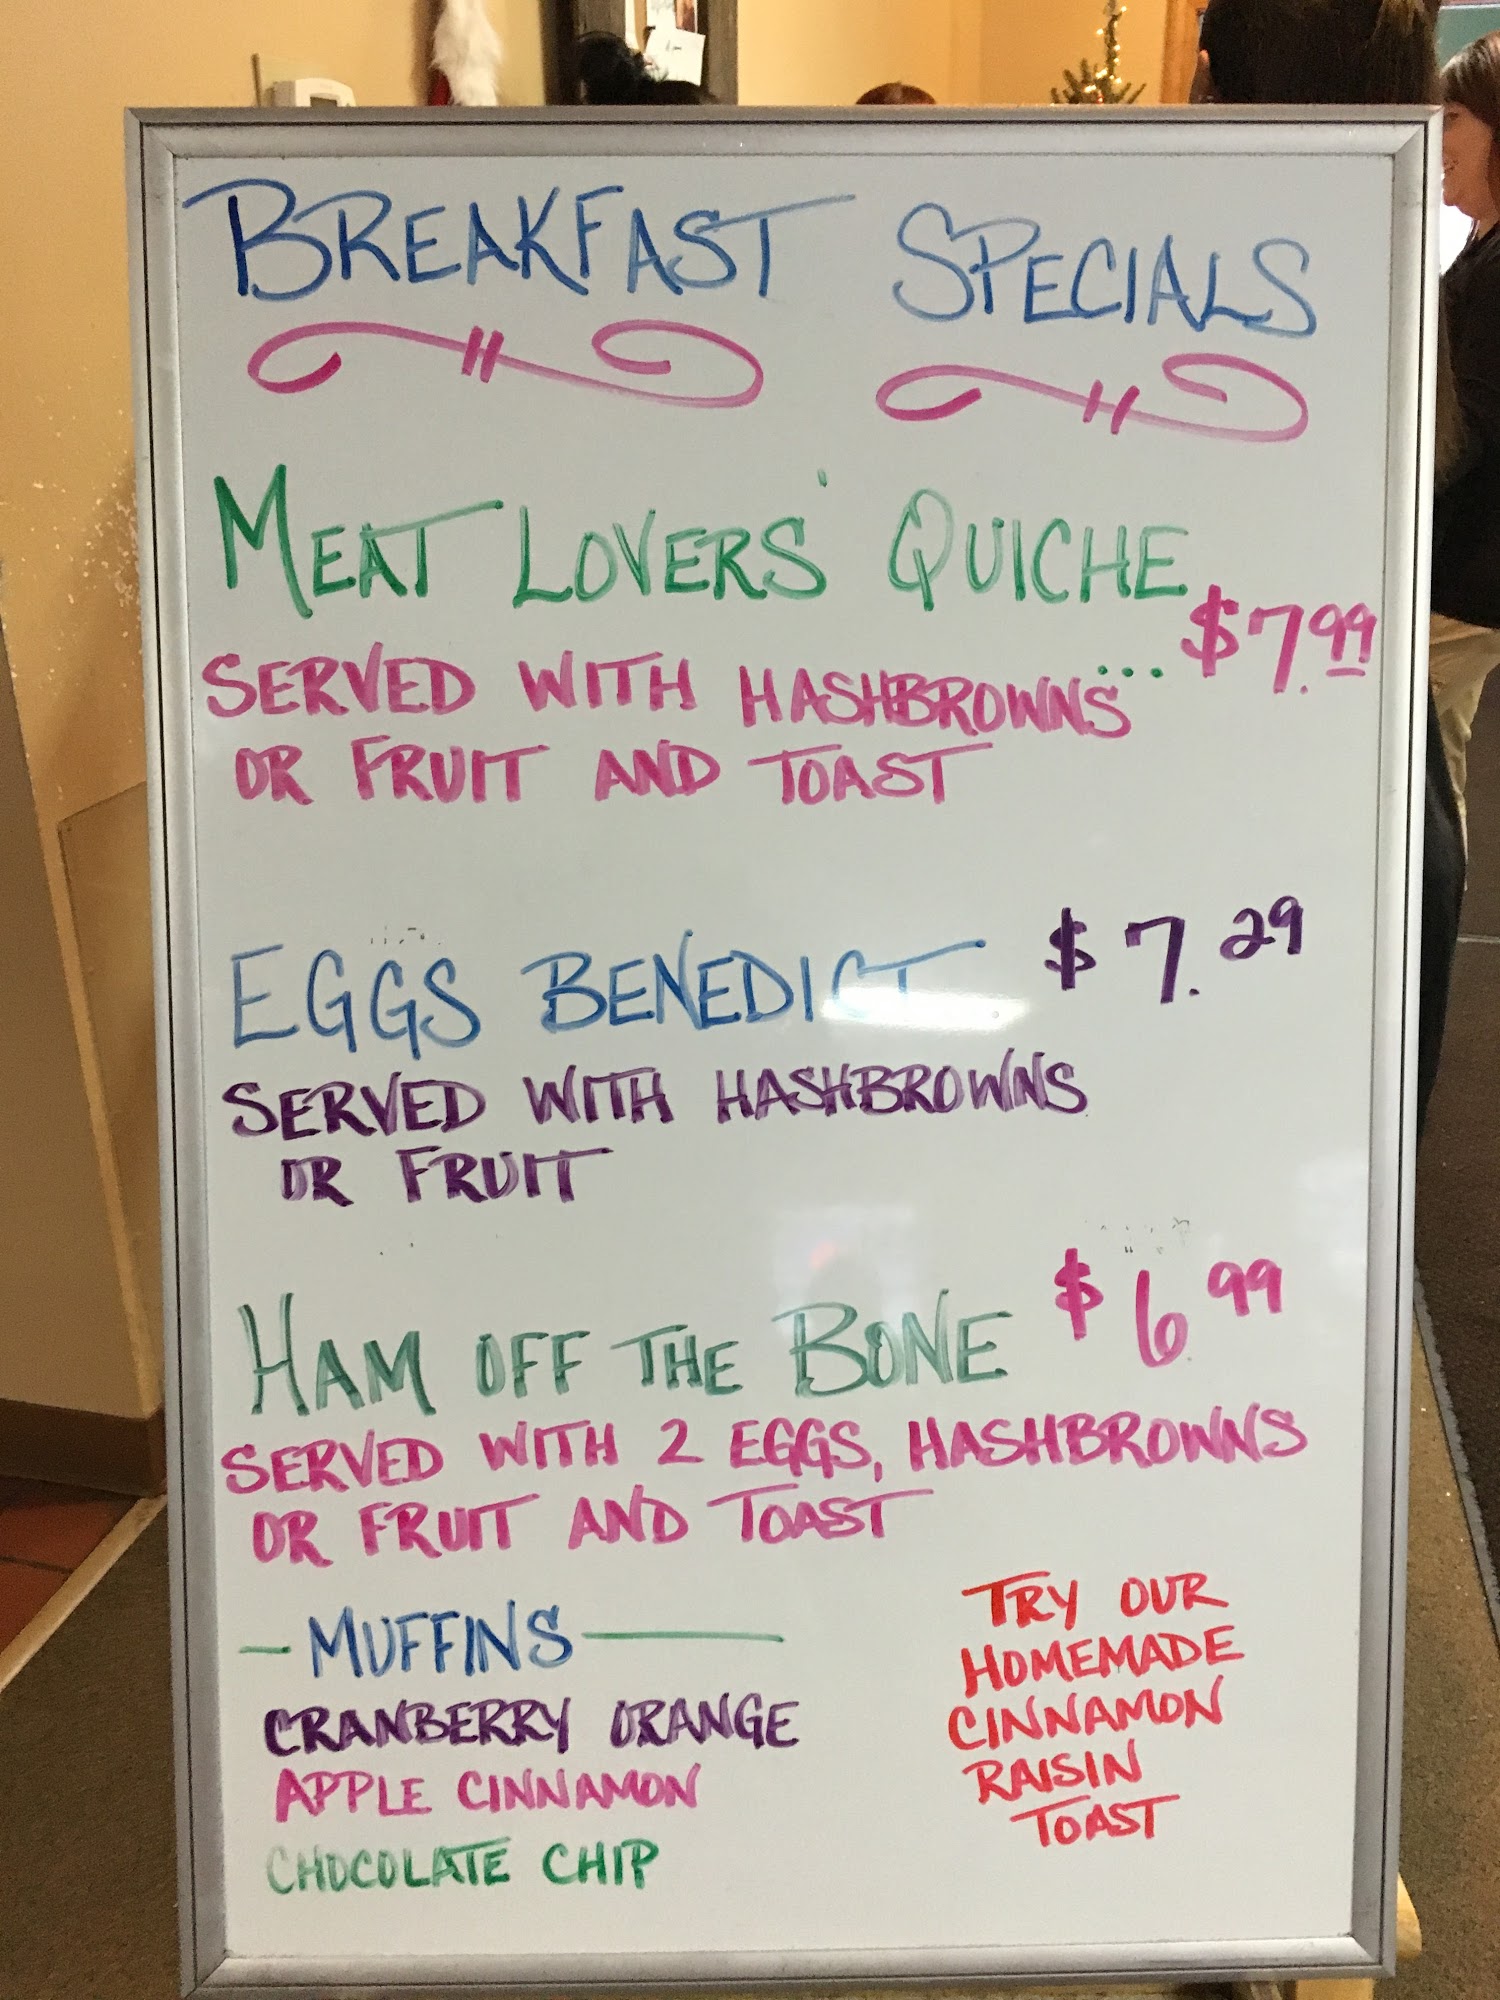 BREAKFAST SPECIALS
MEAT LOVERS' QUICHE
SERVED WITH HASHBROWNS... $7.99
OR FRUIT AND TOAST
EGGS BENEDICT $7.29
SERVED WITH HASHBROWNS
OR FRUIT
HAM OFF THE BONE $6.99
SERVED WITH 2 EGGS, HASHBROWNS
OR FRUIT AND TOAST
- MUFFINS -
CRANBERRY ORANGE
APPLE CINNAMON
CHOCOLATE CHIP
TRY OUR
HOMEMADE
CINNAMON
RAISIN
TOAST